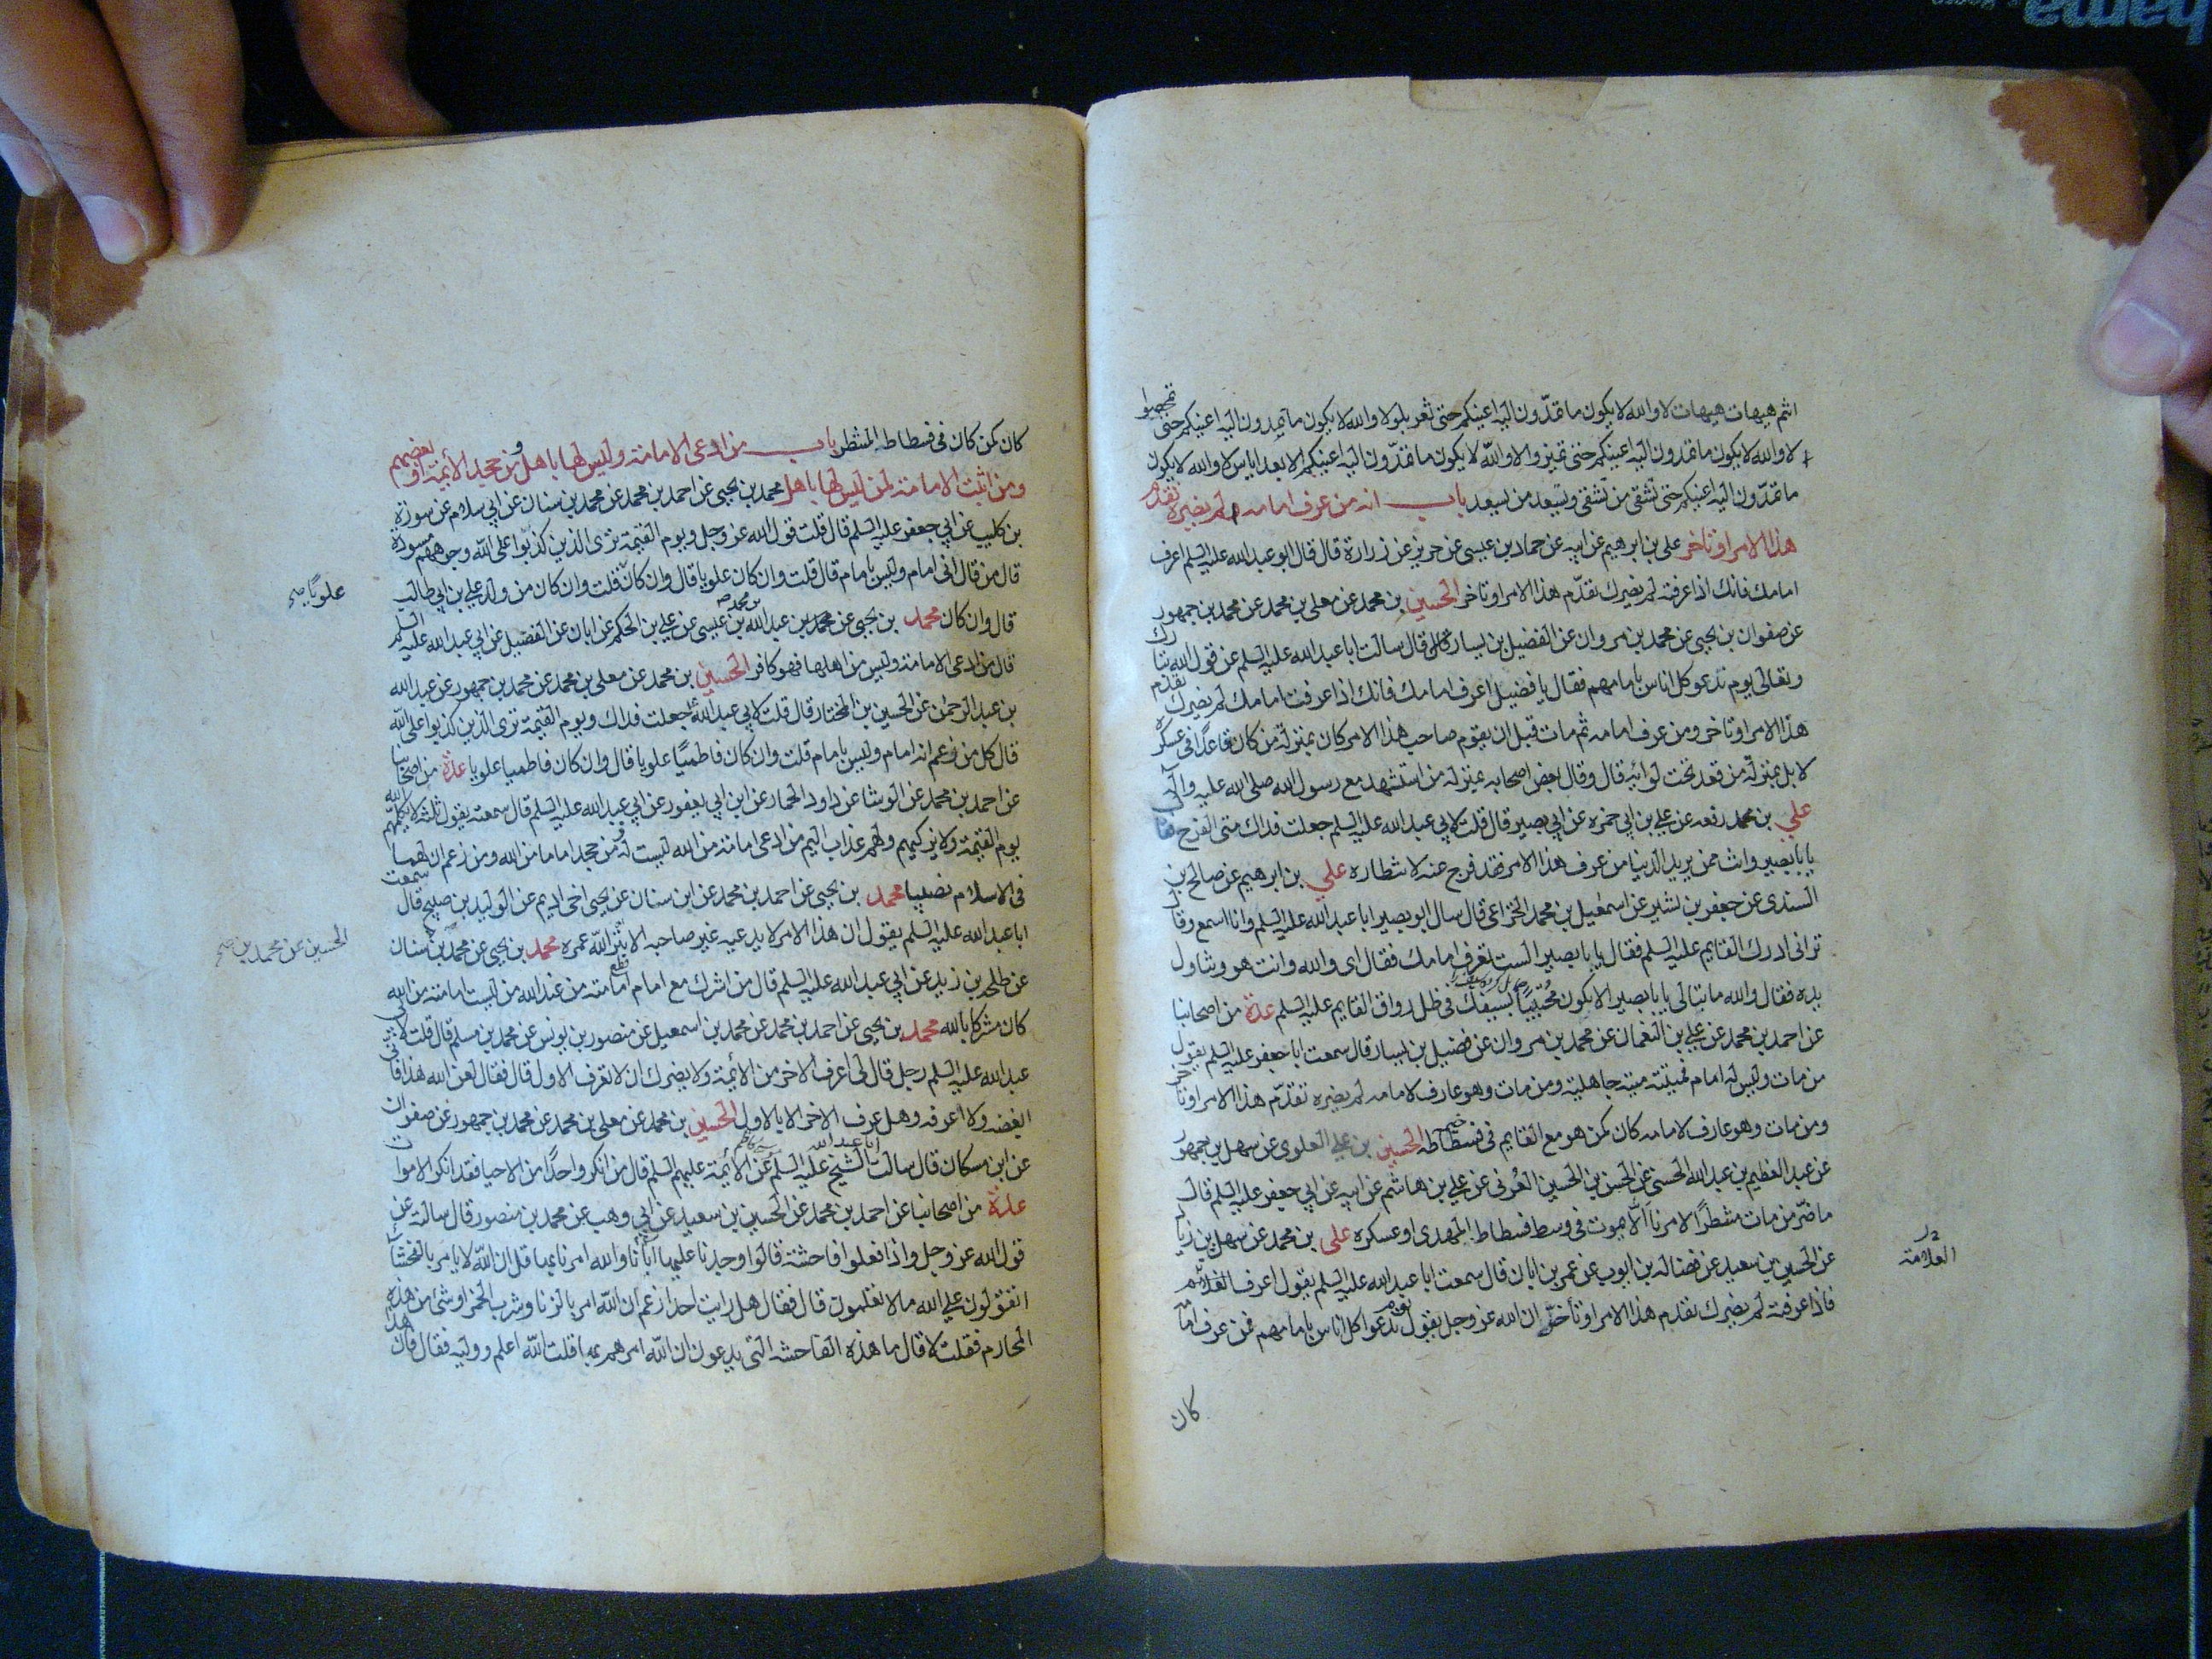 انتم هيهات هيهات لا والله لا يكون ما تمدّون اليه اعينكم حتى تغربلوا لا والله لا يكون ما تمدون اليه اعينكم حتى تمحصوا
لا والله لا يكون ما تمدون اليه اعينكم حتى تميزوا لا والله لا يكون ما تمدّون اليه اعينكم الا بعد اياس لا والله لا يكون
ما تمدّون اليه اعينكم حتى يشقى من يشقى ويسعد من يسعد باب انه من عرف امامه لم يضره تقدم
هذا الامر او تاخر علي بن ابرهيم عن ابيه عن حماد بن عيسى عن حريز عن زرارة قال قال ابو عبد الله عليه السلم اعرف
امامك فانك اذا عرفته لم يضرك تقدّم هذا الامر او تاخر الحسين بن محمد عن معلى بن محمد عن محمد بن جمهور
عن صفوان بن يحيى عن محمد بن مروان عن الفضيل بن يسار قال سالت ابا عبد الله عليه السلم عن قول الله تبارك
وتعالى يوم ندعو كل اناس بامامهم فقال يا فضيل اعرف امامك فانك اذا عرفت امامك لم يضرك تقدم
هذا الامر او تاخر ومن عرف امامه ثم مات قبل ان يقوم صاحب هذا الامر كان بمنزلة من كان قاعدًا في عسكره
لا بل بمنزلة من قعد تحت لوائه قال وقال بعض اصحابه بمنزلة من استشهد مع رسول الله صلى الله عليه واله
علي بن محمد رفعه عن علي بن ابي حمزه عن ابي بصير قال قلت لابي عبد الله عليه السلم جعلت فداك متى الفرج فقال
يا با بصير وانت ممن يريد الدنيا من عرف هذا الامر فقد فرج عنه لانتظاره علي بن ابرهيم عن صالح بن
السندى عن جعفر بن بشير عن اسمعيل بن محمد الخزاعى قال سال ابو بصير ابا عبد الله عليه السلم وانا اسمع وقال
ترانى ادرك القايم عليه السلم فقال يا با بصير الست تعرف امامك فقال اى والله وانت هو وتناول
يده فقال والله ما تبالى يا با بصير الا تكون محتبيًا بسيفك في ظل رواق القايم عليه السلم عدة من اصحابنا
عن احمد بن محمد عن علي بن النعمان عن محمد بن مروان عن فضيل بن يسار قال سمعت ابا جعفر عليه السلم يقول
من مات وليس له امام فميتته ميتة جاهلية ومن مات وهو عارف لامامه لم يضره تقدّم هذا الامر او تاخر
ومن مات وهو عارف لامامه كان كمن هو مع القايم في فسطاطه الحسين بن علي العلوى عن سهل بن جمهور
عن عبد العظيم بن عبد الله الحسنى عن الحسن بن الحسين العرنى عن علي بن هاشم عن ابيه عن ابي جعفر عليه السلم قال
ما ضرّ من مات منتظرًا لامرنا الّا يموت في وسط فسطاط المهدى او عسكره علي بن محمد عن سهل بن زياد
عن الحسين بن سعيد عن فضالة بن ايوب عن عمر بن ابان قال سمعت ابا عبد الله عليه السلم يقول اعرف
العلامة
فاذا عرفته لم يضرك تقدم هذا الامر او تأخّر ان الله عز وجل يقول يوم ندعوا كل اناس بامامهم فمن عرف امامه
كان
كان كمن كان في فسطاط المنتظر باب من ادعى الامامة وليس لها باهل ومن جحد الأئمة او بعضهم
ومن اثبت الامامة لمن ليس لها باهل محمد بن يحيى عن احمد بن محمد عن محمد بن سنان عن ابي سلام عن سورة
بن كليب عن ابي جعفر عليه السلم قال قلت قول الله عز وجل ويوم القيمة ترى الذين كذبوا على الله وجوههم مسودة
قال من قال انى امام وليس بامام قال قلت وان كان علويا قال وان كان قلت وان كان من ولد علي بن ابي طالب
علويًا صح
قال وان كان محمد بن يحيى عن محمد بن عبد الله بن عيسى عن علي بن الحكم عن ابان عن الفضيل عن ابي عبد الله عليه السلم
قال من ادعى الامامة وليس من اهلها فهو كافر الحسين بن محمد عن معلى بن محمد عن محمد بن جمهور عن عبد الله
بن عبد الرحمن عن الحسين بن المختار قال قلت لابي عبد الله جعلت فداك ويوم القيمة ترى الذين كذبوا على الله
قال كل من زعم انه امام وليس بامام قلت وان كان فاطميًا علويا قال وان كان فاطميا علويا عدة من اصحابنا
عن احمد بن محمد عن الوشا عن داود الحمار عن ابن ابي يعفور عن ابي عبد الله عليه السلم قال سمعته يقول ثلثة لا يكلمهم الله
يوم القيمة ولا يزكيهم ولهم عذاب اليم من ادعى امامة من الله ليست له ومن جحد اماما من الله ومن زعم ان لهما
في الاسلام نصيبا محمد بن يحيى عن احمد بن محمد عن ابن سنان عن يحيى اخى اديم عن الوليد بن صبيح قال سمعت
ابا عبد الله عليه السلم يقول ان هذا الامر لا يدعيه غير صاحبه الا بتر الله عمره محمد بن يحيى عن محمد بن سنان
الحسين عن محمد بن صح
عن طلحه بن زيد عن ابي عبد الله عليه السلم قال من اشرك مع امام امامته من عند الله من ليست امامته من الله
كان مشركا بالله محمد بن يحيى عن احمد بن محمد عن محمد بن اسمعيل عن منصور بن يونس عن محمد بن مسلم قال قلت لابي
عبد الله عليه السلم رجل قال لى اعرف الاخر من الأئمة ولا يضرك ان لا تعرف الاول قال فقال لعن الله هذا فانى
ابغضه ولا اعرفه وهل عرف الاخر الا بالاول الحسين بن محمد عن معلى بن محمد عن محمد بن جمهور عن صفوان
عن ابن مسكان قال سالت الشيخ عليه السلم عن الأئمة عليهم السلم قال من انكر واحدًا من الاحيا فقد انكر الاموات
عدة من اصحابنا عن احمد بن محمد عن الحسين بن سعيد عن ابي وهب عن محمد بن منصور قال سالته عن
قول الله عز وجل واذا فعلوا فاحشة قالوا وجدنا عليها آبآنا والله امرنا بها قل ان الله لا يامر بالفحشآ
اتقولون على الله ما لا تعلمون قال فقال هل رايت احدا زعم ان الله امر بالزنا وشرب الخمر او شى من هذه
المحارم فقلت لا قال ما هذه الفاحشه التى يدعون ان الله امرهم بها قلت الله اعلم ووليه فقال فان هذا